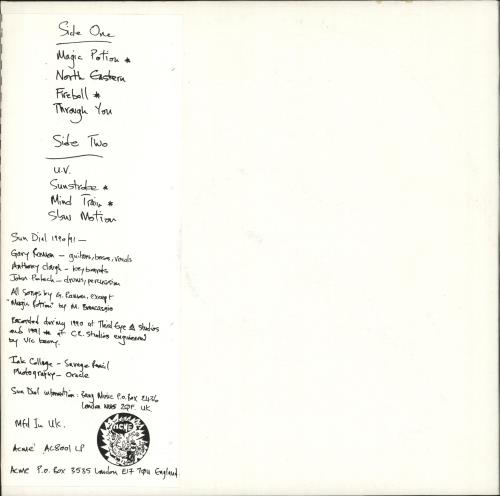 Side One
Magic Potion *
North Eastern
Fireball *
Through You
Side Two
U.V.
Sunstroke *
Mind Train *
Slow Motion
Sun Dial 1990/91 —
Gary Ramon — guitars, bass, vocals
Anthony Clough — keyboards
John — drums, percussion
All songs by G. Ramon, except
"Magic Potion" by M. Brancaccio
Recorded during 1990 at Third Eye Studios
and 1991 * at C.R. Studios engineered
by Vic
Ink Collage — Savage Pencil
Photography — Oracle
Sun Dial information: Bang Music P.O. Box 2436
London NW5 2QF. UK.
Mfd In UK.
ACME
Acme' AC8001 LP
Acme P.O. Box 3585 London E17 7QH England.